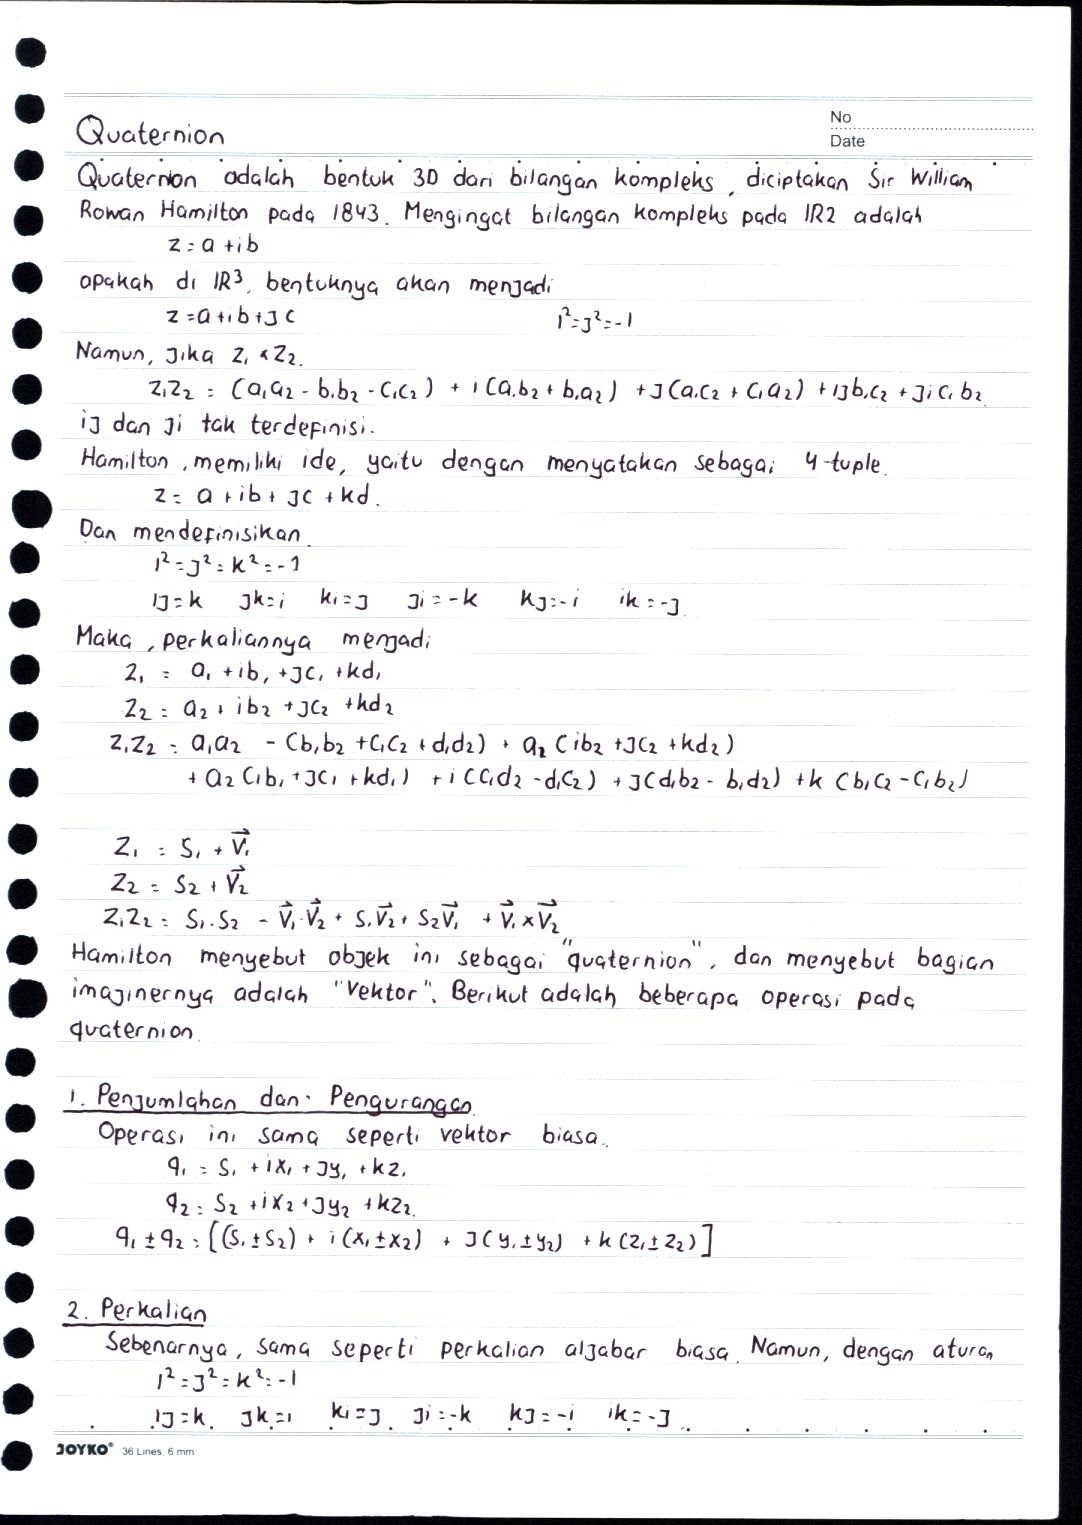 No
Date
Quaternion
Quaternion adalah bentuk 3D dari bilangan kompleks, diciptakan Sir William
Rowan Hamilton pada 1843. Mengingat bilangan kompleks pada IR2 adalah
z = a + ib
apakah di IR³, bentuknya akan menjadi
z = a + ib + jc i² = j² = -1
Namun, jika z₁ × z₂.
z₁z₂ = (a₁a₂ - b₁b₂ - c₁c₂) + i(a₁b₂ + b₁a₂) + j(a₁c₂ + c₁a₂) + ijb₁c₂ + jic₁b₂
ij dan ji tak terdefinisi.
Hamilton, memiliki ide, yaitu dengan menyatakan sebagai 4-tuple.
z = a + ib + jc + kd.
Dan mendefinisikan.
i² = j² = k² = -1
ij = k jk = i ki = j ji = -k kj = -i ik = -j
Maka, perkaliannya menjadi
z₁ = a₁ + ib₁ + jc₁ + kd₁
z₂ = a₂ + ib₂ + jc₂ + kd₂
z₁z₂ = a₁a₂ - (b₁b₂ + c₁c₂ + d₁d₂) + a₂(ib₂ + jc₂ + kd₂)
+ a₂(ib₁ + jc₁ + kd₁) + i(c₁d₂ - d₁c₂) + j(d₁b₂ - b₁d₂) + k(b₁c₂ - c₁b₂)
z₁ = s₁ + v⃗₁
z₂ = s₂ + v⃗₂
z₁z₂ = s₁.s₂ - v⃗₁.v⃗₂ + s₁v⃗₂ + s₂v⃗₁ + v⃗₁×v⃗₂
Hamilton menyebut objek ini sebagai "quaternion", dan menyebut bagian
imajinernya adalah "vektor". Berikut adalah beberapa operasi pada
quaternion.
1. Penjumlahan dan Pengurangan
Operasi ini sama seperti vektor biasa.
q₁ = s₁ + ix₁ + jy₁ + kz₁
q₂ = s₂ + ix₂ + jy₂ + kz₂.
q₁ ± q₂ = [(s₁ ± s₂) + i(x₁ ± x₂) + j(y₁ ± y₂) + k(z₁ ± z₂)]
2. Perkalian
Sebenarnya, sama seperti perkalian aljabar biasa. Namun, dengan aturan
i² = j² = k² = -1
ij = k jk = i ki = j ji = -k kj = -i ik = -j
JOYKO® 36 Lines, 6 mm